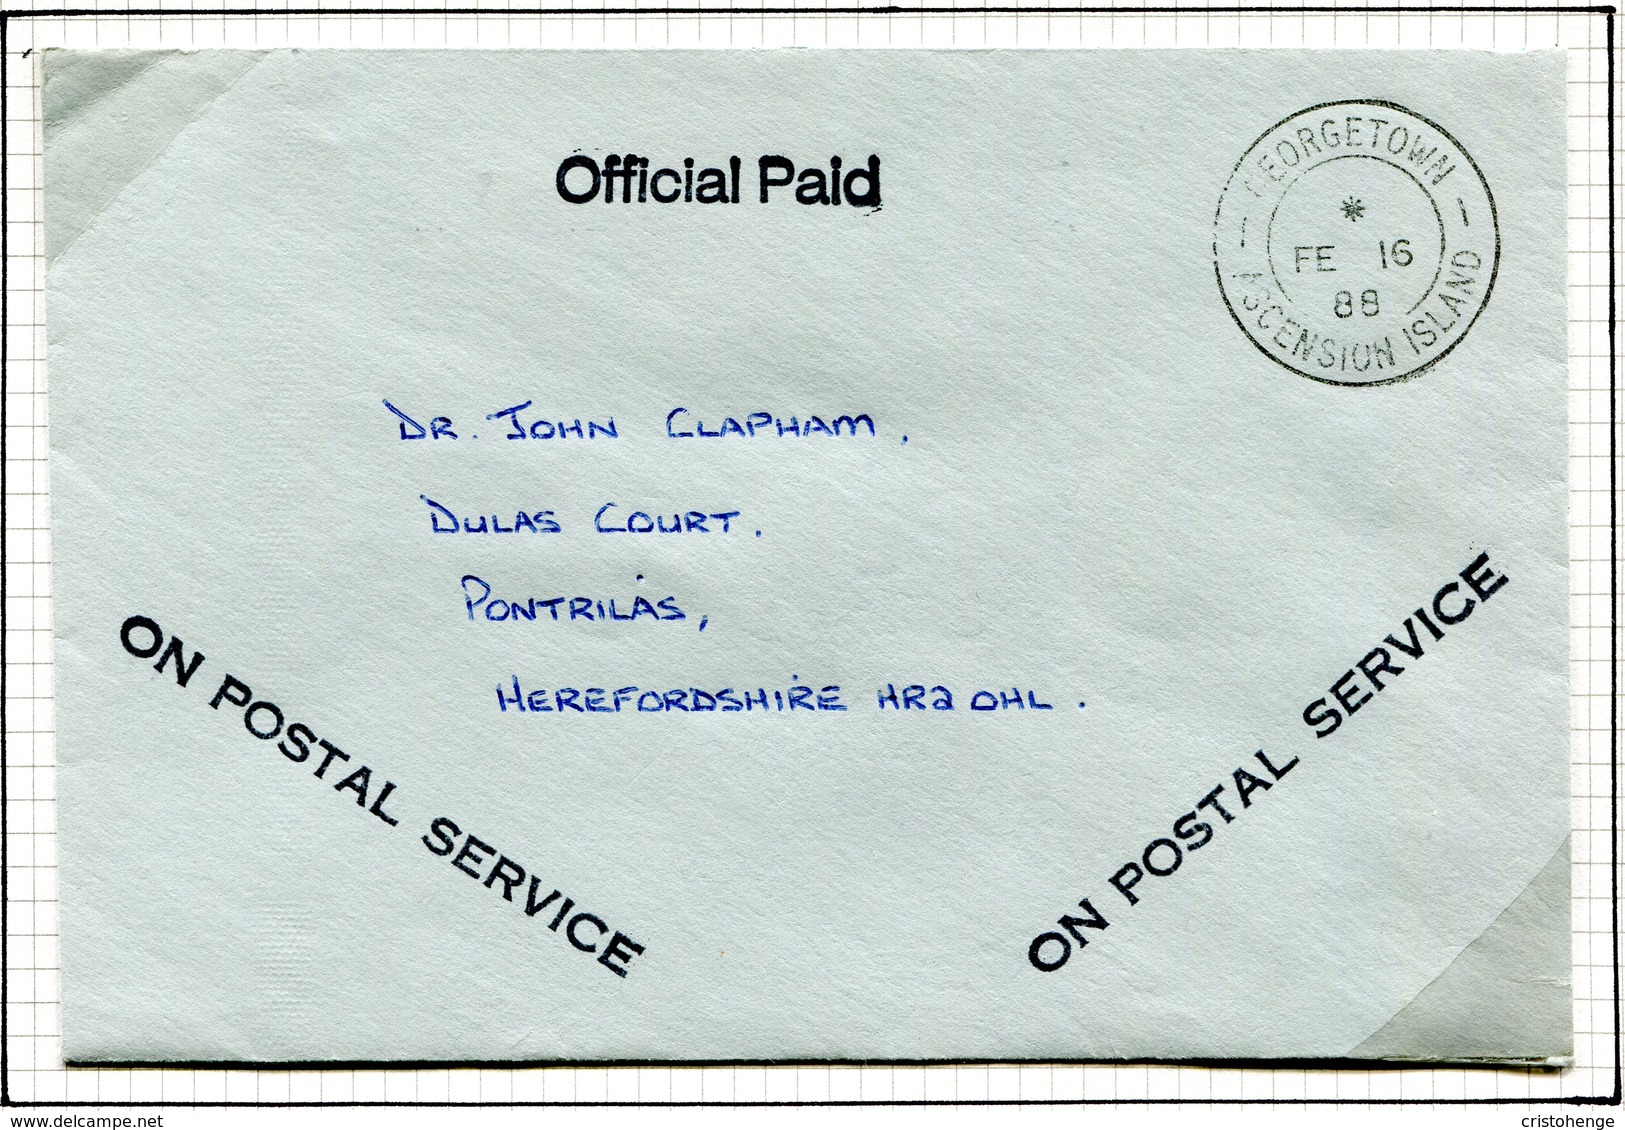 Official Paid
GEORGETOWN
*
FE 16
88
ASCENSION ISLAND
DR. JOHN CLAPHAM,
DULAS COURT.
PONTRILAS,
HEREFORDSHIRE HR2 OHL.
ON POSTAL SERVICE
ON POSTAL SERVICE
www.delcampe.net
cristohenge